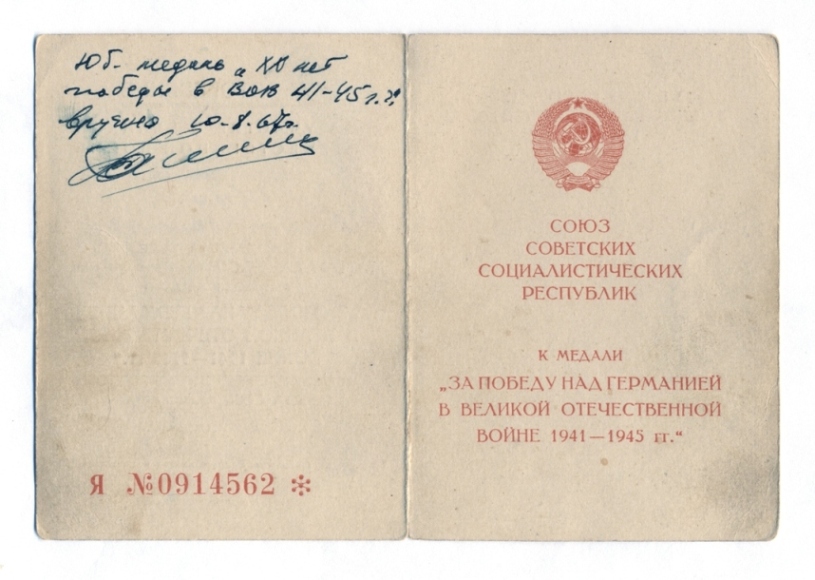 Юб. медаль „ХХ лет
победы в ВОВ 41-45 г.г."
вручено 10.8.67г.
Я №0914562 *
СОЮЗ
СОВЕТСКИХ
СОЦИАЛИСТИЧЕСКИХ
РЕСПУБЛИК
К МЕДАЛИ
„ЗА ПОБЕДУ НАД ГЕРМАНИЕЙ
В ВЕЛИКОЙ ОТЕЧЕСТВЕННОЙ
ВОЙНЕ 1941—1945 гг.“